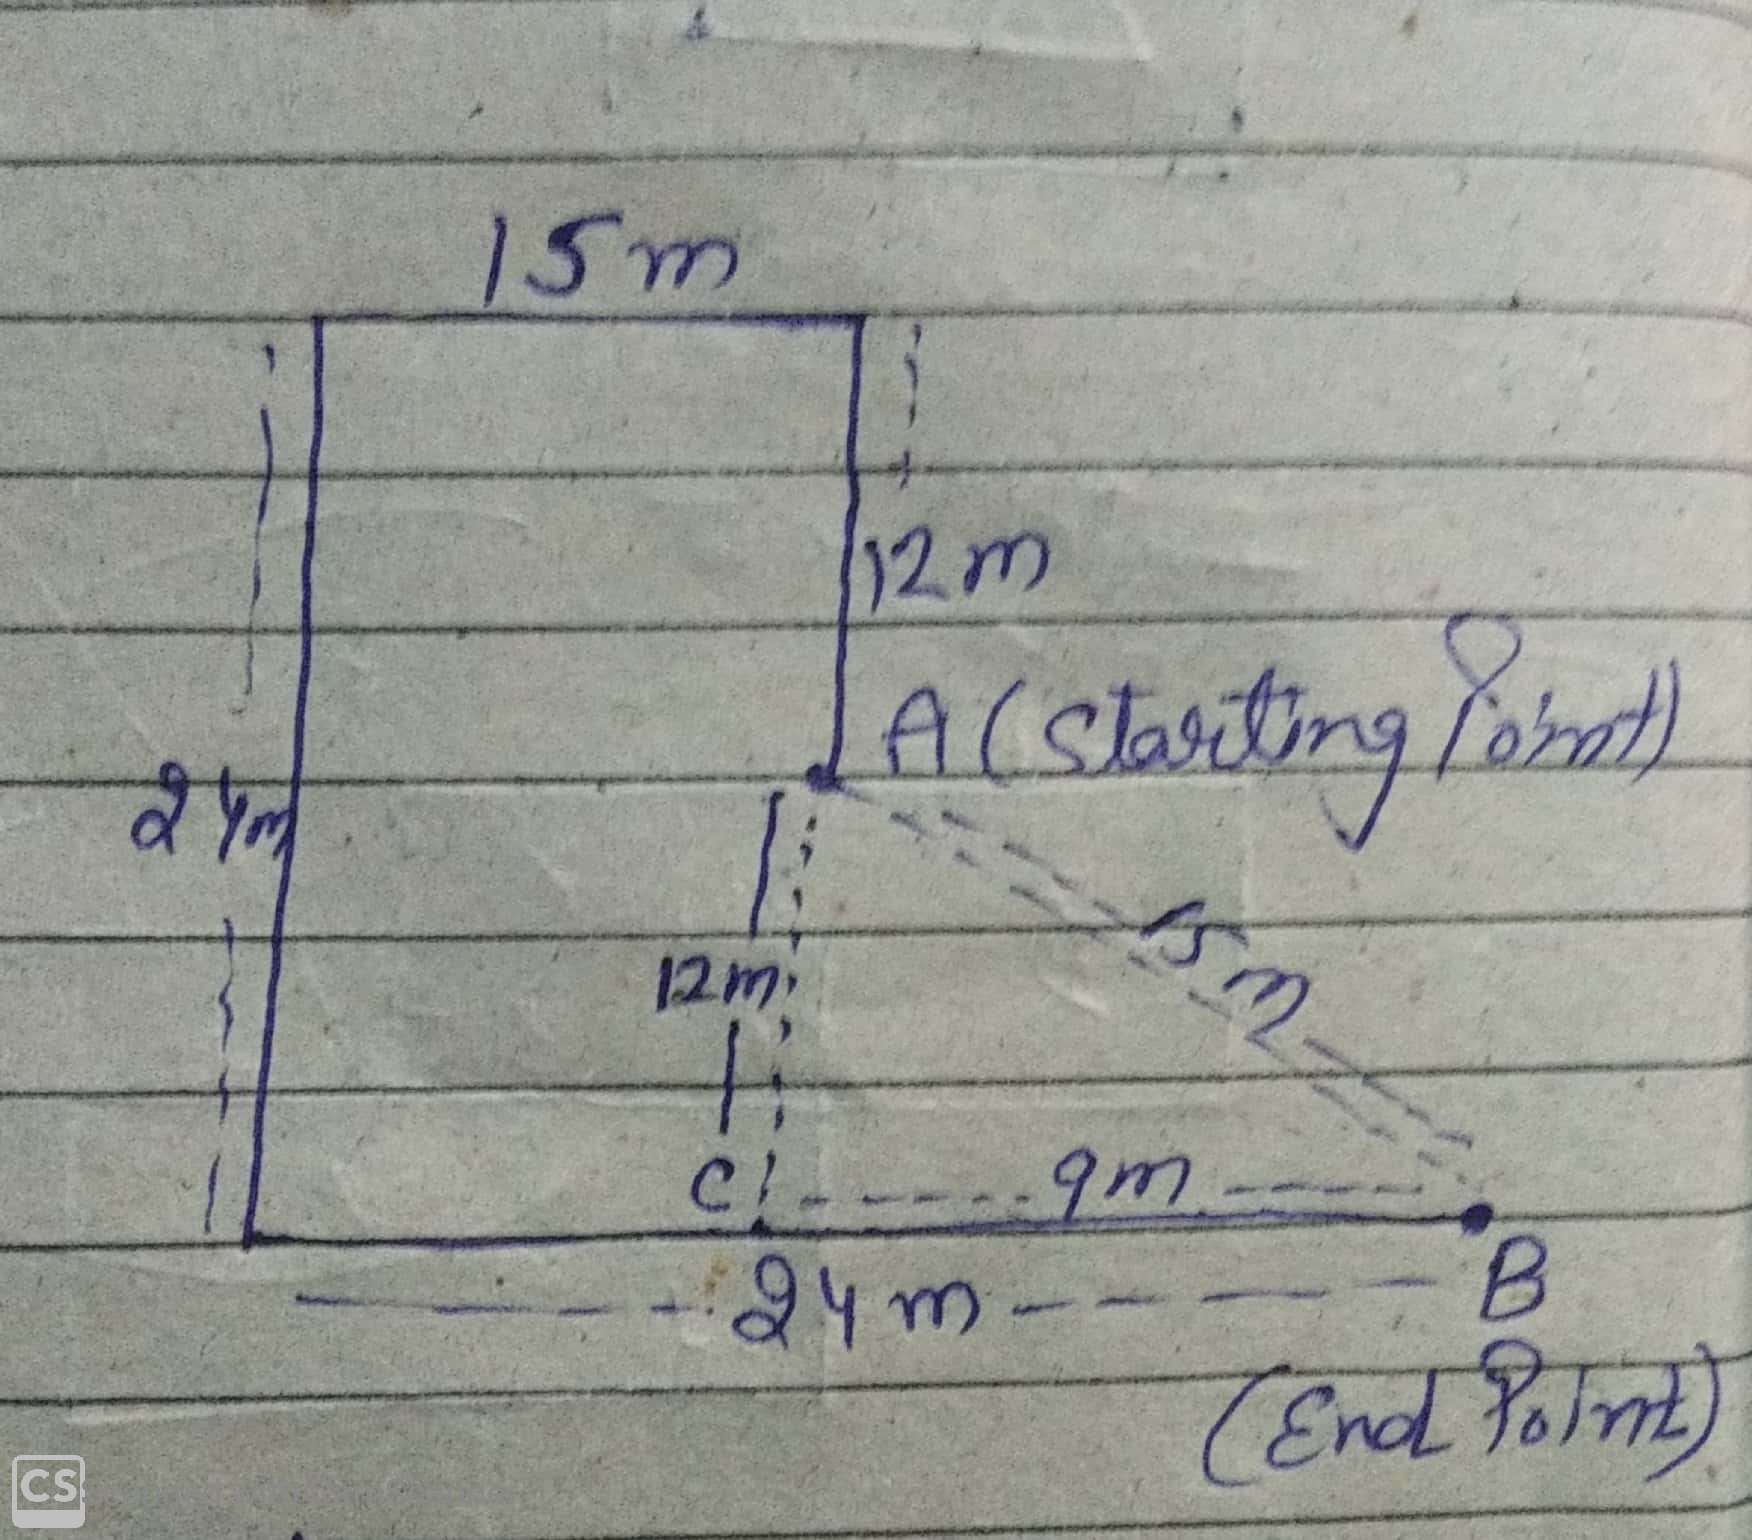 15m
12m
A (Starting Point)
24m
5m
12m
C
9m
24m
B
(End Point)
CS